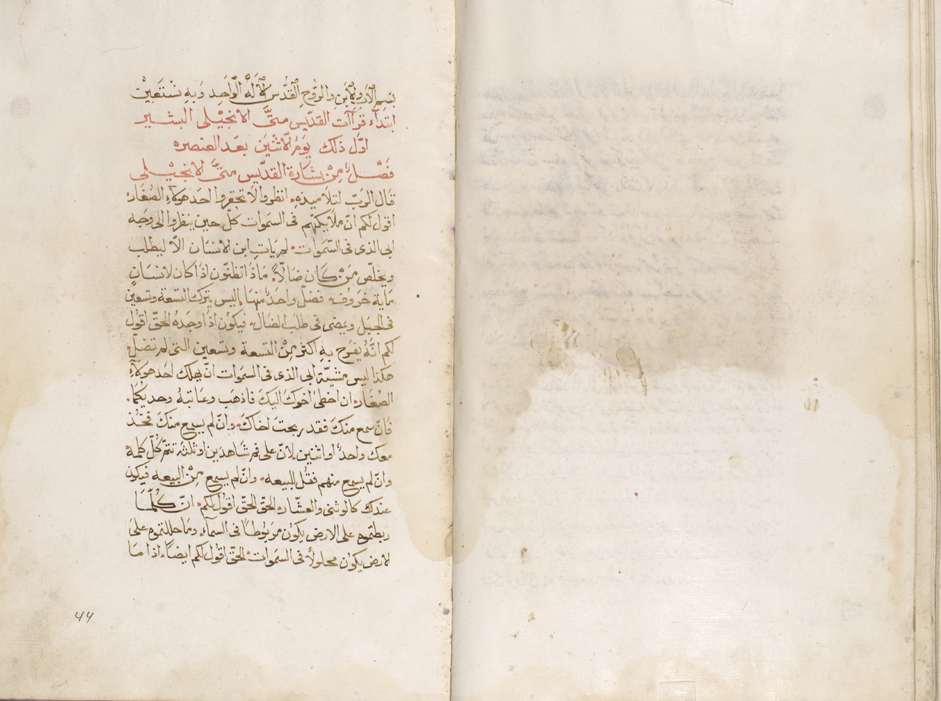 بسم الاب والابن والروح القدس الاله الواحد وبه نستعين
ابتداء قراات القديس متى الانجيلى البشير
اول ذلك يوم الاثنين بعد العنصره
فصل من بشارة القديس متى الانجيلى
قال الرب لتلاميذه انظروا لا تحقروا احد هولاء الصغار
اقول لكم ان ملايكتهم فى السموات كل حين ينظروا الى وجه
ابى الذى فى السموات لم يات ابن الانسان الا ليطلب
ويخلص من كان ضالا ماذا تظنون اذا كان لانسان
ماية خروف فضل واحد منها اليس يترك التسعة وتسعين
فى الجبل ويمضى فى طلب الضال فيكون اذا وجده الحق اقول
لكم انه يفرح به اكثر من التسعة وتسعين التى لم تضل
هكذا ليس مشيئة ابى الذى فى السموات ان يهلك احد هوكاء
الصغار ان اخطى اخوك اليك فاذهب وعاتبه وحديكما
فان سمع منك فقد ربحت اخاك وان لم يسمع منك فخذ
معك واحد او اثنين لان على فم شاهدين او ثلثه تتم كل كلمة
وان لم يسمع منهم فقل للبيعه وان لم يسمع من البيعه فيكون
عندك كالوثنى والعشار الحق الحق اقول لكم ان كلما
ربطتموه على الارض يكون مربوطا فى السماء وما حللتموه على
الارض يكون محلولا فى السموات الحق اقول لكم ايضا اذا ما
44